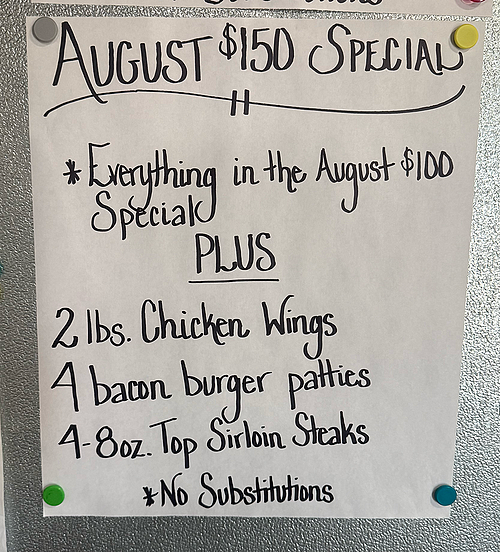 AUGUST $150 SPECIAL
*Everything in the August $100
Special
PLUS
2 lbs. Chicken Wings
4 bacon burger patties
4-8oz. Top Sirloin Steaks
*No Substitutions